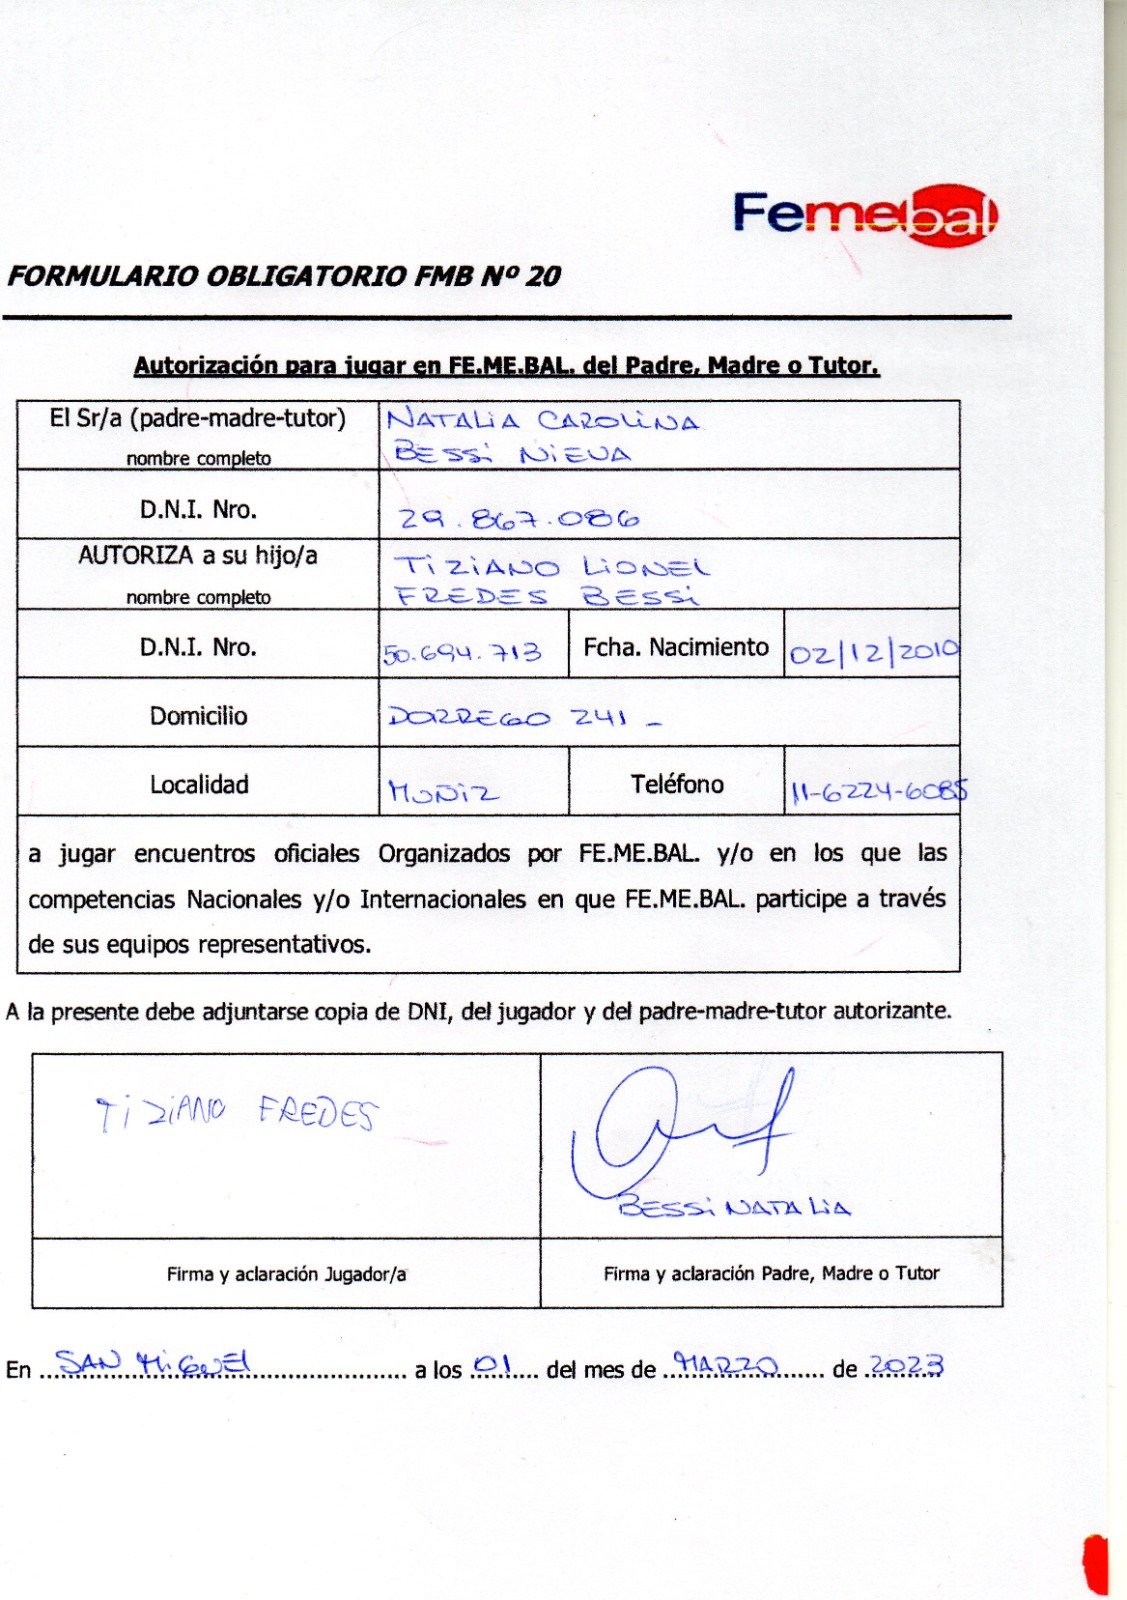 Femebal
FORMULARIO OBLIGATORIO FMB Nº 20
Autorización para jugar en FE.ME.BAL. del Padre, Madre o Tutor.
El Sr/a (padre-madre-tutor) NATALIA CAROLINA
nombre completo BESSI NIEVA
D.N.I. Nro. 29.867.086
AUTORIZA a su hijo/a TIZIANO LIONEL
nombre completo FREDES BESSI
D.N.I. Nro. 50.694.713 Fcha. Nacimiento 02/12/2010
Domicilio DORREGO 241 -
Localidad MUÑIZ Teléfono 11-6224-6085
a jugar encuentros oficiales Organizados por FE.ME.BAL. y/o en los que las
competencias Nacionales y/o Internacionales en que FE.ME.BAL. participe a través
de sus equipos representativos.
A la presente debe adjuntarse copia de DNI, del jugador y del padre-madre-tutor autorizante.
TIZIANO FREDES
BESSI NATALIA
Firma y aclaración Jugador/a Firma y aclaración Padre, Madre o Tutor
En SAN MIGUEL a los 01 del mes de MARZO de 2023